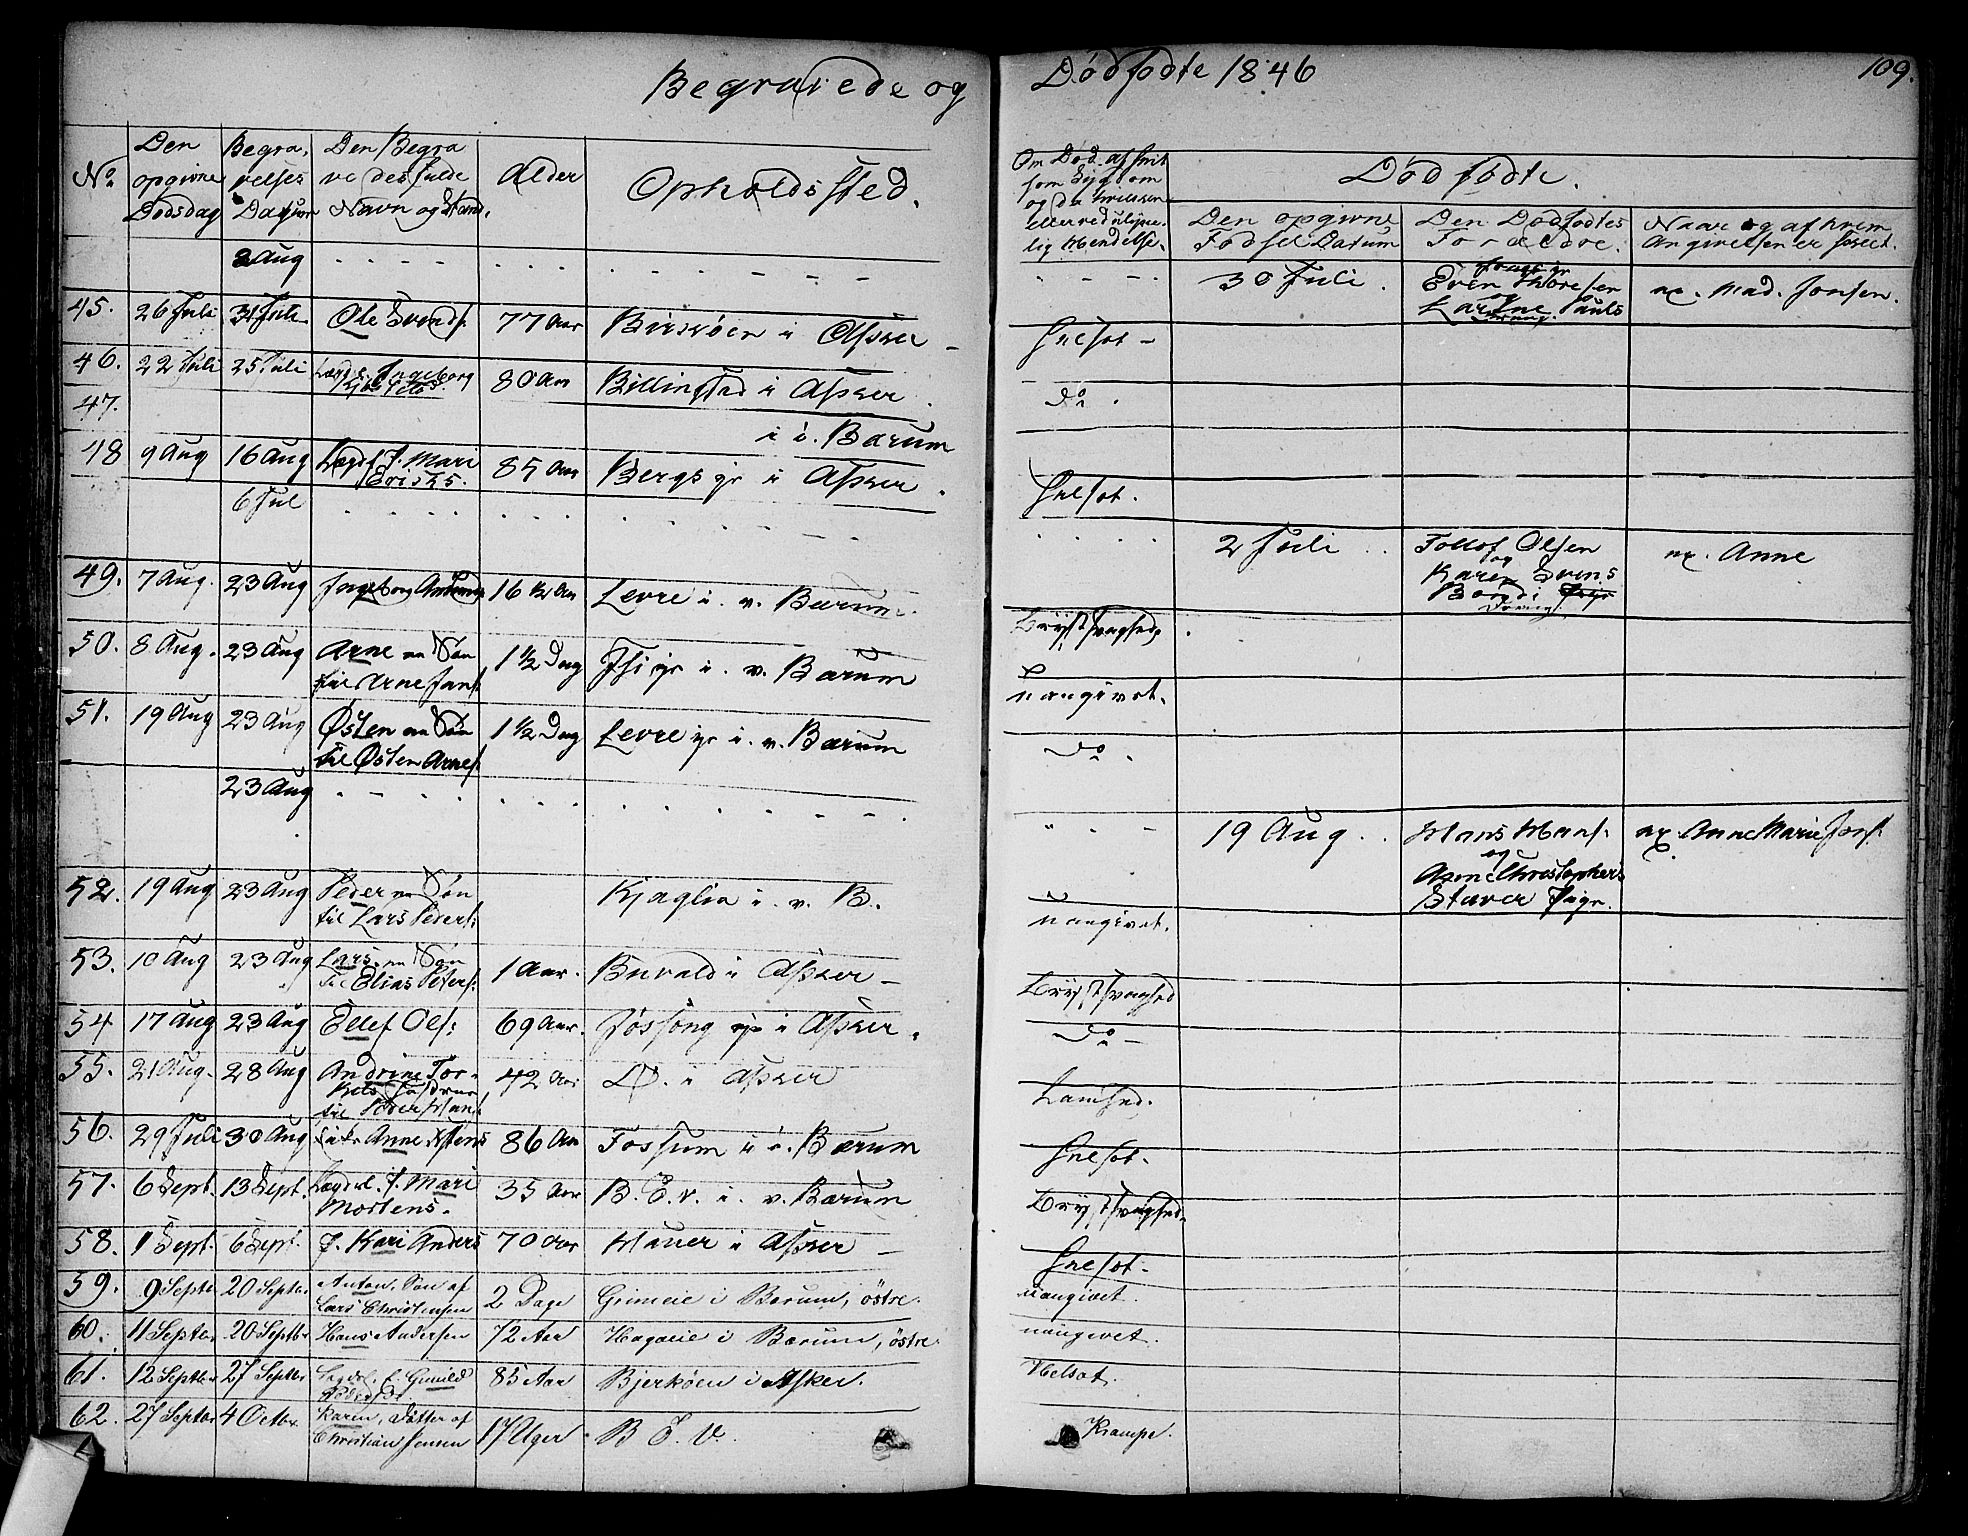 Begravede og Dødfødte 1846 109.
No Den opgivne Dødsdag Begravelses Dagen Den Begravedes fulde Navn og Stand. Alder Opholdssted. Om Død af
som Sygdom og da
eller ved ulykkelig Hendelse. Dødfødte.
Den opgivne Fødsel Datum Den Dødfødtes Forældre. Naar og af hvem Angivelsen er skeet.
2 Aug 30 Juli. Even Thoresen
og Larine Pauls af. Mad. Jonsen.
45. 26 Juli 31 Juli Ole Svends. 77 Aar Birkøen i Asker Helsot
46. 22 Juli 25 Juli Lægdsl. Ingeborg
80 Aar Billingstad i Asker. Do.
47. i. Barum
48 9 Aug 16 Aug Lægdsl. F. Mari
Eriks. 85 Aar Bergs gr i Asker. Helsot.
6 Jul 2 Juli Tollof Olsen
og
Karen Svens
af. Anne
49. 7 Aug. 23 Aug Ingeborg 16 Aar Levre i. v. Bærum. Brystsvaghed.
50. 8 Aug. 23 Aug Arne en Søn
til Arne Jans. 1 1/2 Dag i. v. Barum uangivet.
51. 19 Aug 23 Aug Østen en Søn
til Østen Arnes. 1 1/2 Dag Levre gr i. v. Bærum Do.
23 Aug 19 Aug. Hans Hans:
og
Anne Christophers
Staver af. Anne Marie
52. 19 Aug 23 Aug Peder en Søn
til Lars Peders: Kjaglia i. v. B. uangivet.
53. 10 Aug 23 Aug Lars en Søn
til Elias Peters: 1 Aar. i Asker Brystsvaghed
54 17 Aug 23 Aug Ellef Ols: 69 Aar. Jøssong gr i Asker. Do
55. 21 Aug. 28 Aug Andrine Tor-
kels
til Peder Hans 42 Aar i Asker Lamhed.
56. 29 Juli 30 Aug Enke Anne 86 Aar Fossum i i. Bærum Helsot.
57. 6 Sept. 13 Sept. Lægdsl. F. Mari
Mortens. 35 Aar B. E. v. i. v. Bærum Brystsvaghed.
58. 1 Sept. 6 Sept. F. Kari Anders 70 Aar i Asker Helsot.
59. 9 Septe 20 Septe. Anton, Søn af
Lars Christensen 2 Dage Grineie i Bærum, østre. uangivet.
60. 11 Septer 20 Septbr Hans Andersen 72 Aar Hagaeie i Bærum, østre uangivet.
61. 12 Septbr 27 Septbr Lægdsl. f. Gunild
85 Aar Bjerkøen i Asker. Helsot.
62. 27 Septbr 4 Octbr. Karen, Datter af
Christian Jensen 17 Uger B E. V. Krampe.